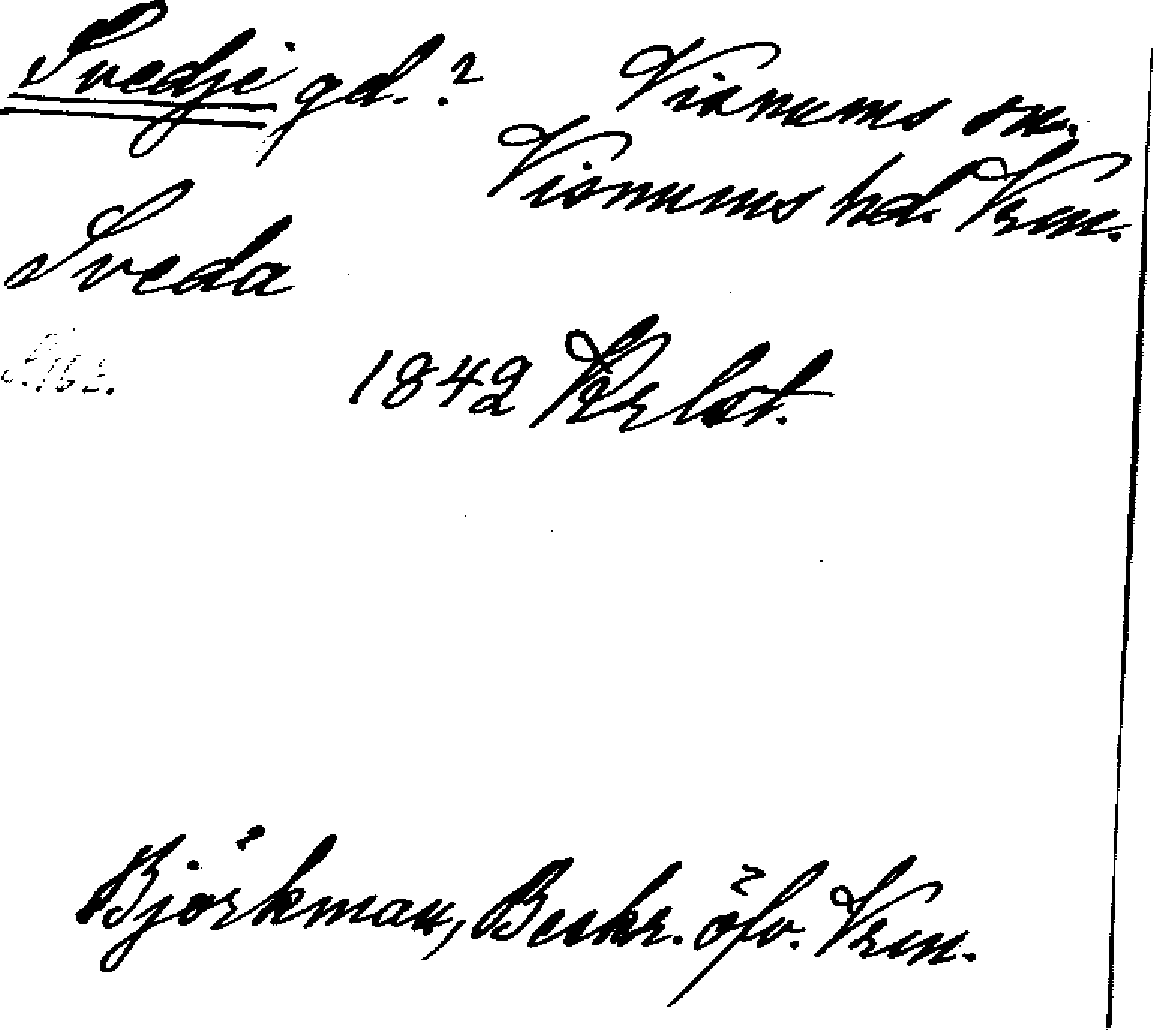 Svedje gd.? Visnums sn.
Visnums hd. Vrm.
Sveda
1842
Björkman, Beskr. öfv. Vrm.